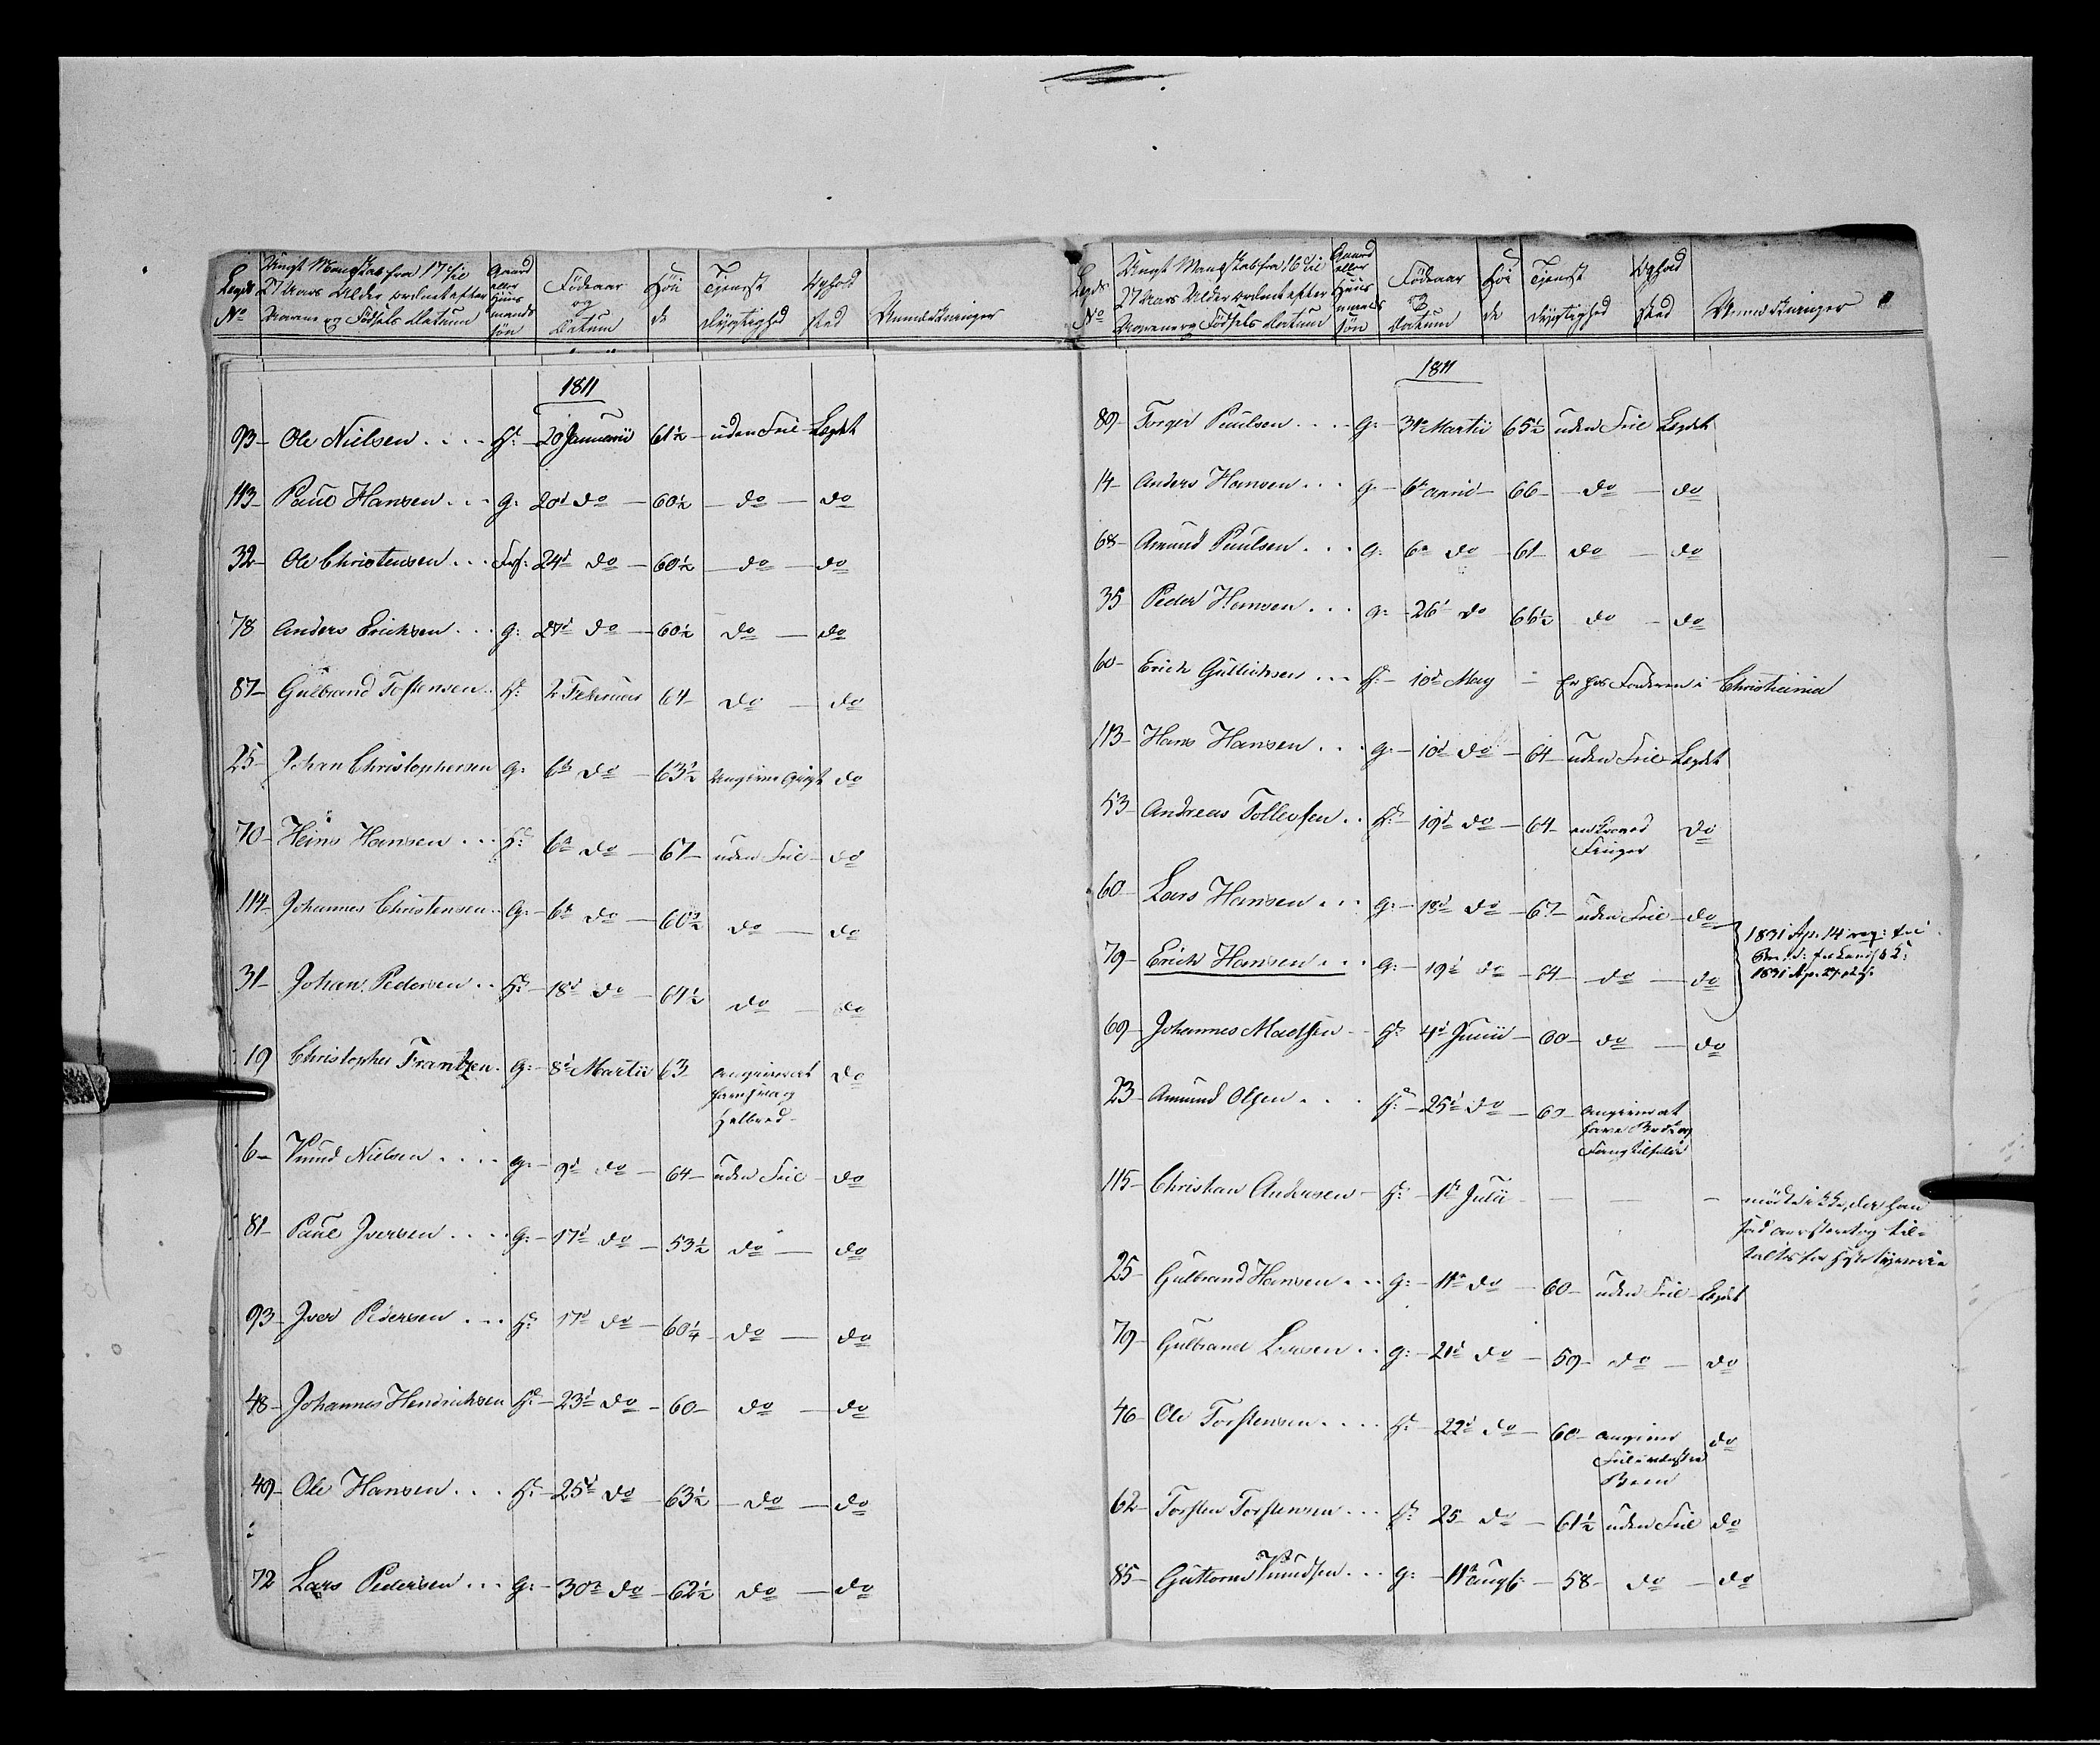 Legds No | Ungt Mandskab fra 17 til 27 Aars Alder ordnet efter Navne og Födsels Datum | Gaard eller Huus mands sön | Födeaar og Datum | Höi de | Tjenst dygtighed | Ophold sted | Anmærkninger
1811
93 - Ole Nielsen . . . . H: - 20 Januarii 61½ - uden Feil - Legdet
113 - Paul Hansen . . . g: 20d do - 60½ - do - do
32 - Ole Christensen . . . 24d do - 60½ - do - do
78 Anders Erichsen . . . g: 27d do - 60½ do - do
87 - Gulbrand Tostensen . . H: 2 Februar 64 - do - do
25 - Johan Christophersen g: 6te do - 63½ Angiver Gigt do
70 - Hans Hansen . . . H: 6te do - 67 - uden Feil - do
114 - Johannes Christensen . . g: - 6te do - 60½ do - do
31 - Johan Pedersen . . H: - 18d do - 61½ do - do
19 Christopher Frantzen . g: - 8d Martii 63 - Angiver at have svag Helbred - do
6 - Knud Nielsen . . . . g: - 9d do - 64 - uden Feil - do
81 - Paul Iversen . . . . g: - 17d do - 53½ do - do
93 - Iver Pedersen . . . H: 17d do - 60¼ - do - do
48 - Johannes Hendrichsen H: - 23d do - 60 - do - do
49 - Ole Hansen . . . H: - 25d do - 63½ - do - do
72 Lars Pedersen . . . g: - 30te do - 62½ do - do
Legds No | Ungt Mandskab fra 16 til 27 Aars Alder ordnet efter Navne og Födsels Datum | Gaard eller Huus mands sön | Födeaar og Datum | Höi de | Tjenst dygtighed | Ophold sted | Anmærkninger
1811
89 - Torger Paulsen . . . . g: - 31te Martii 65½ uden Feil Legdet
14 - Anders Hansen . . . g: - 6te April - 66 - do - do
68 - Amund Paulsen . . . g: 6te do - 61 - do - do
35 Peder Hansen . . . g: - 26d do 66½ do - do
60 - Erich Gullichsen . . . H: - 10de May - Er hos Faderen i Christiania
113 - Hans Hansen . . . g: - 10d do - 64 - uden Feil - Legdet
53 - Andreas Tollefsen . . H: - 19d do - 64 - en krumed Finger do
60 - Lars Hansen . . . g: - 18d do - 67 - uden Feil - do
79 - Erich Hansen . . . g: - 19d do - 64 - do - do
1831 Apr. 14
1831 Apr. 27
69 - Johannes Madssen - H: 4d Junii - 60 - do - do
23 - Amund Olsen . . . H: - 25d do - 60 - Angiver at have Brok og
115 - Christian Andersen - H: - 1te Julii - - - mödte ikke, da han sad arresteret og tiltalt for Tyverie
25 - Gulbrand Hansen . . . g: - 11te do - 60 - uden Feil - Legdet
79 - Gulbrand Larsen . . g: - 21d do - 59 - do - do
46 - Ole Torstensen . . . . H: - 22d do - 60 - Angiver Feil i venstre Been do
62 - Torsten Torstensen . . . H: 25 - do - 61½ uden Feil do
85 - Guttorm Knudsen . . . g: - 11te Augt: - 58 - do - do